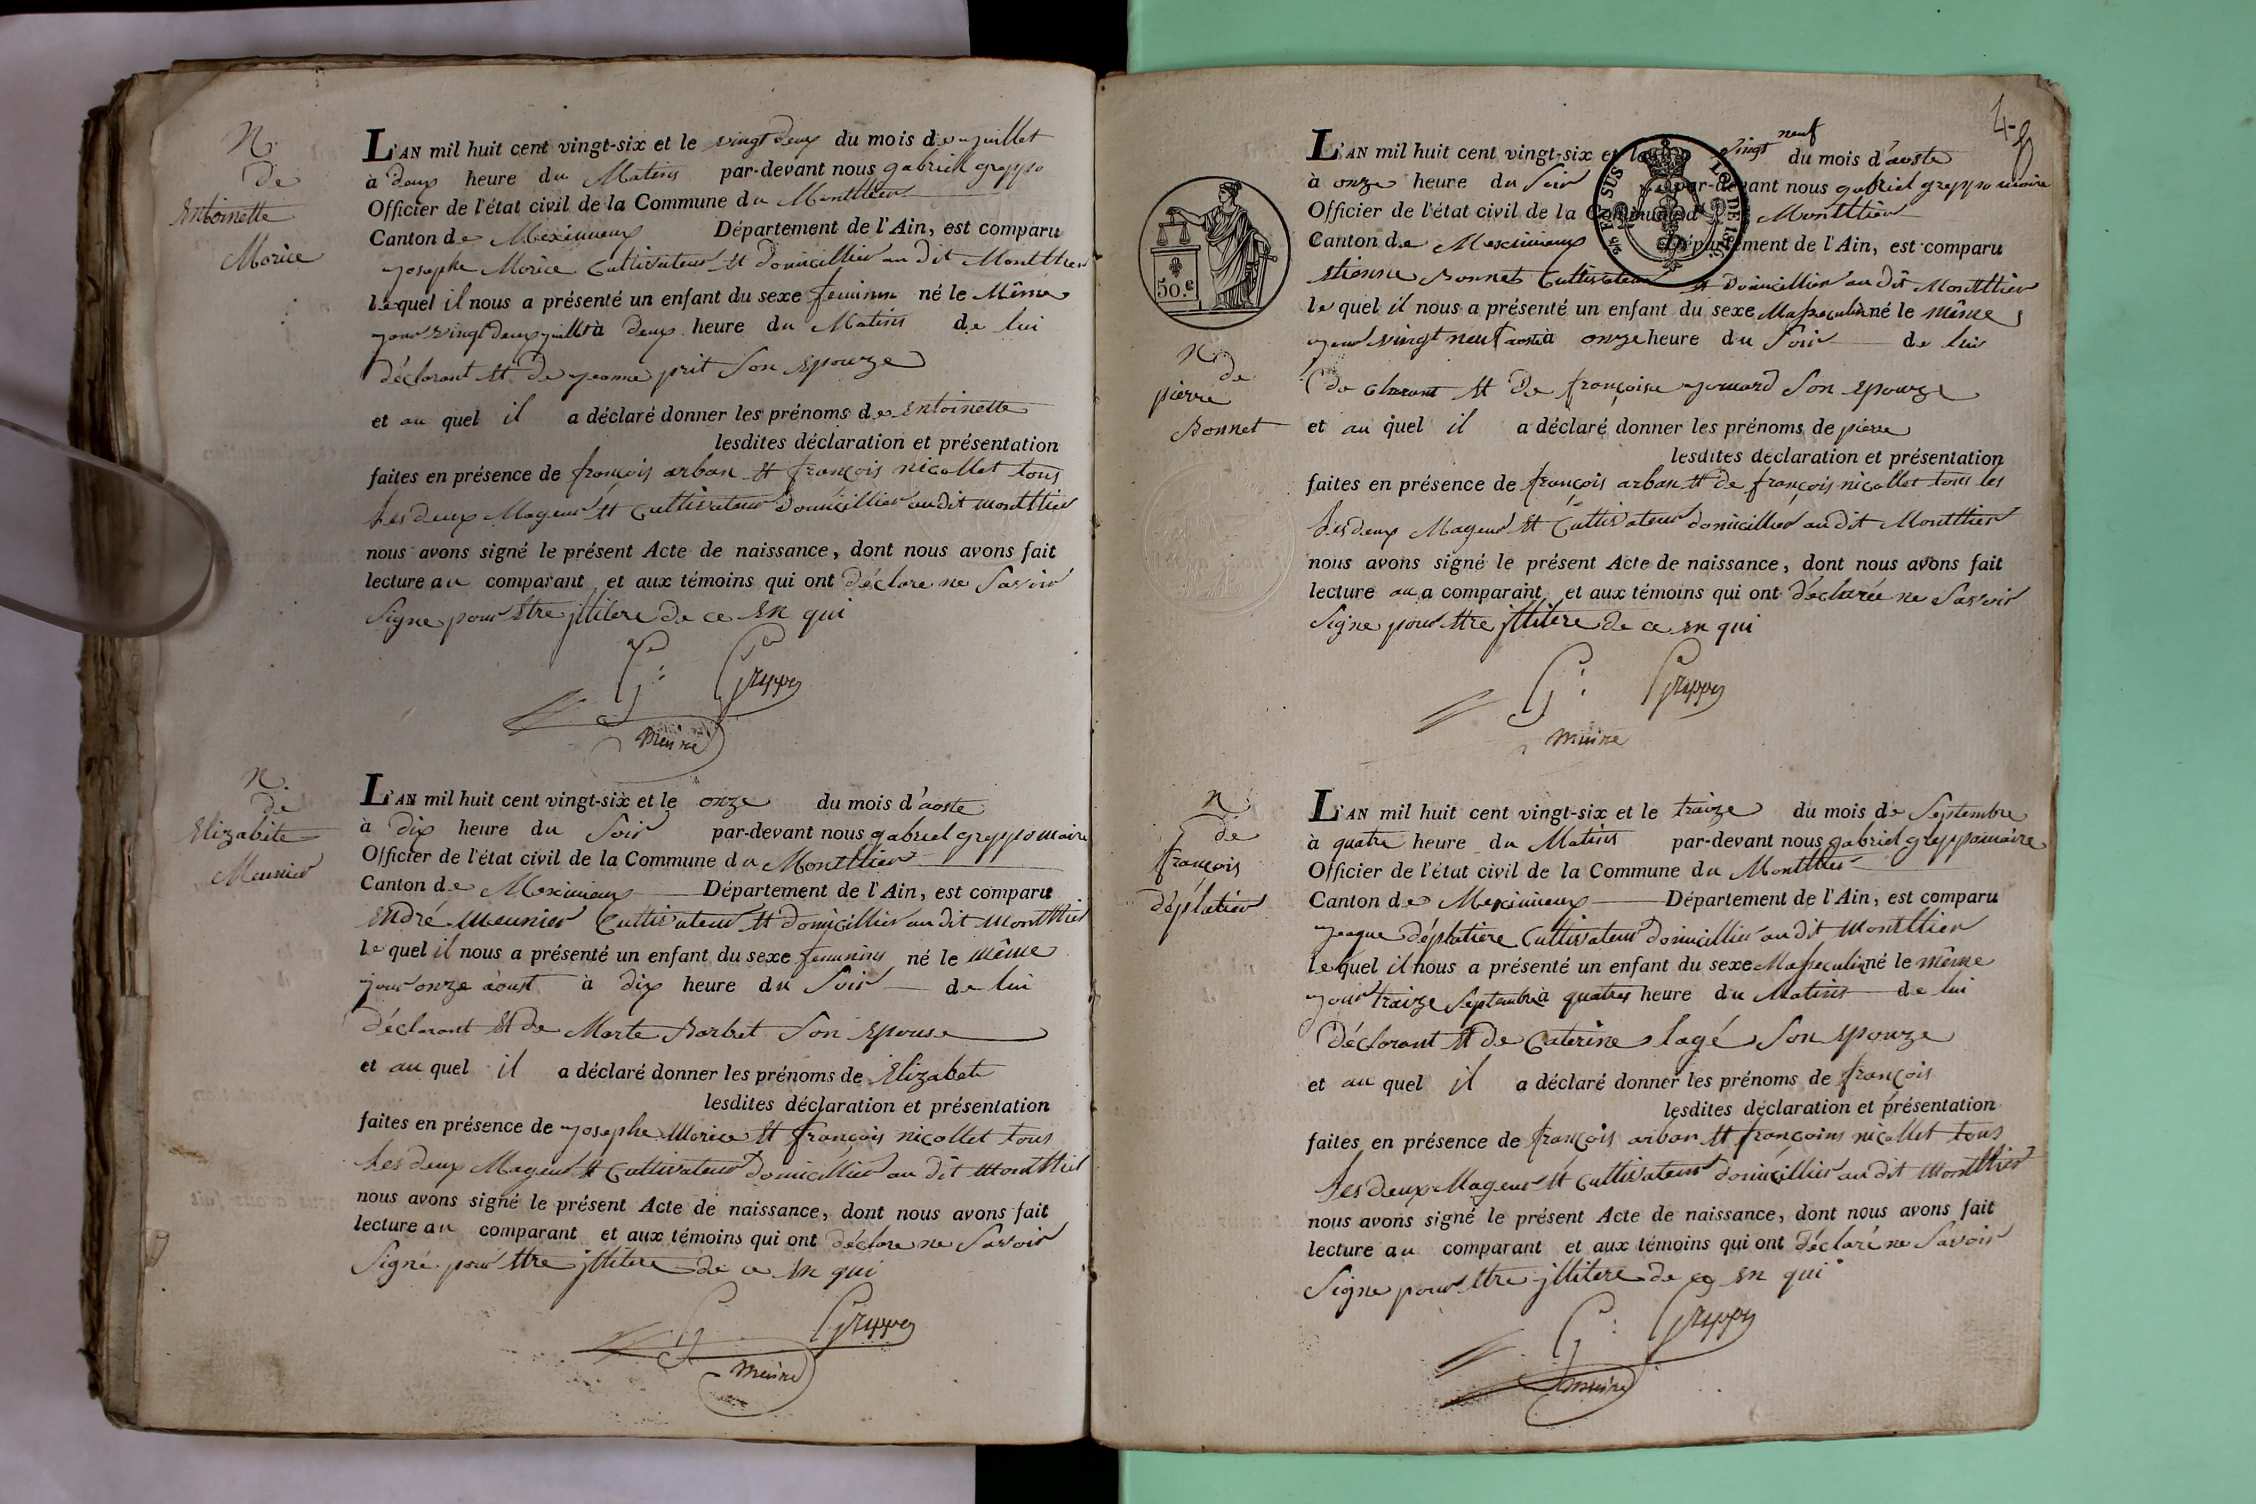 N.
de
Antoinette
Morice
L'AN mil huit cent vingt-six et le vingt deux du mois de juillet
à deux heure du Matins par-devant nous gabriell greppo
Officier de l'état civil de la Commune du Montthier
Canton de Meximieux Département de l'Ain, est comparu
josephe Morice Cultivateur Et domicillier au dit Montthier
le quel il nous a présenté un enfant du sexe feminin né le Même
jour vingt deux juillet à deux heure du Matins de lui
déclarant Et de jeanne prit Son Epouze
et au quel il a déclaré donner les prénoms de Entoinette
lesdites déclaration et présentation
faites en présence de françois arban Et françois nicollet tous
Les deux Mageur Et Cultivateur domicillier au dit montthier
nous avons signé le présent Acte de naissance, dont nous avons fait
lecture au comparant et aux témoins qui ont déclare ne Savoir
Signe pour Etre jllitere de ce En qui
G: Greppo
Meire
N.
de
Elizabite
Meunier
L'AN mil huit cent vingt-six et le onze du mois d'aoste
à dix heure du Soir par-devant nous gabriel greppo maire
Officier de l'état civil de la Commune du Montthier
Canton de Meximieux Département de l'Ain, est comparu
Endré Meunier Cultivateur Et domicillier au dit Montthier
le quel il nous a présenté un enfant du sexe feminins né le même
jour onze aoust à dix heure du Soir de lui
déclarant Et de Marte Barbet Son Epouse
et au quel il a déclaré donner les prénoms de Elizabet
lesdites déclaration et présentation
faites en présence de josephe Morice Et françois nicollet tous
Les deux Mageur Et Cultivateur domicillier au dit Montthier
nous avons signé le présent Acte de naissance, dont nous avons fait
lecture au comparant et aux témoins qui ont déclare ne Savoir
Signé pour Etre jllitere de ce En qui
G. Greppo
Meire
50.c
N.
de
pierre
Bonnet
L'AN mil huit cent vingt-six et le vingt neuf du mois d'aoste
à onze heure du Soir par-devant nous gabriel greppo maire
Officier de l'état civil de la Commune du Montthier
Canton de Meximieux Département de l'Ain, est comparu
Etienne Bonnet Cultivateur Et domicillier au dit Montthier
le quel il nous a présenté un enfant du sexe Masseculin né le même
jour vingt neuf aoste à onze heure du Soir de lui
de clarant Et De françoise jomard Son Epouze
et au quel il a déclaré donner les prénoms de pierre
lesdites déclaration et présentation
faites en présence de françois arban Et de françois nicollet tous les
Les deux Mageur Et Cultivateur domicillier au dit Montthier
nous avons signé le présent Acte de naissance, dont nous avons fait
lecture au a comparant et aux témoins qui ont déclarée ne Savoir
Signe pour Etre jllitere de ce En qui
G: Greppo
Meire
N.
de
françois
déplatier
L'AN mil huit cent vingt-six et le traize du mois de Septembre
à quatre heure du Matins par-devant nous gabriel greppo maire
Officier de l'état civil de la Commune du Montthier
Canton de Meximieux Département de l'Ain, est comparu
jeaque déplatiere Cultivateur domicillier au dit Montthier
le quel il nous a présenté un enfant du sexe Masseculin né le même
jour traize Septembre à quatres heure du Matins de lui
déclarant Et de Caterine lagé Son Epouze
et au quel il a déclaré donner les prénoms de françois
lesdites déclaration et présentation
faites en présence de françois arban Et françoins nicollet tous
Les deux Mageur Et Cultivateur domicillier au dit Montthier
nous avons signé le présent Acte de naissance, dont nous avons fait
lecture au comparant et aux témoins qui ont déclaré ne Savoir
Signe pour Etre jllitere de ce En qui
G: Greppo
Meire